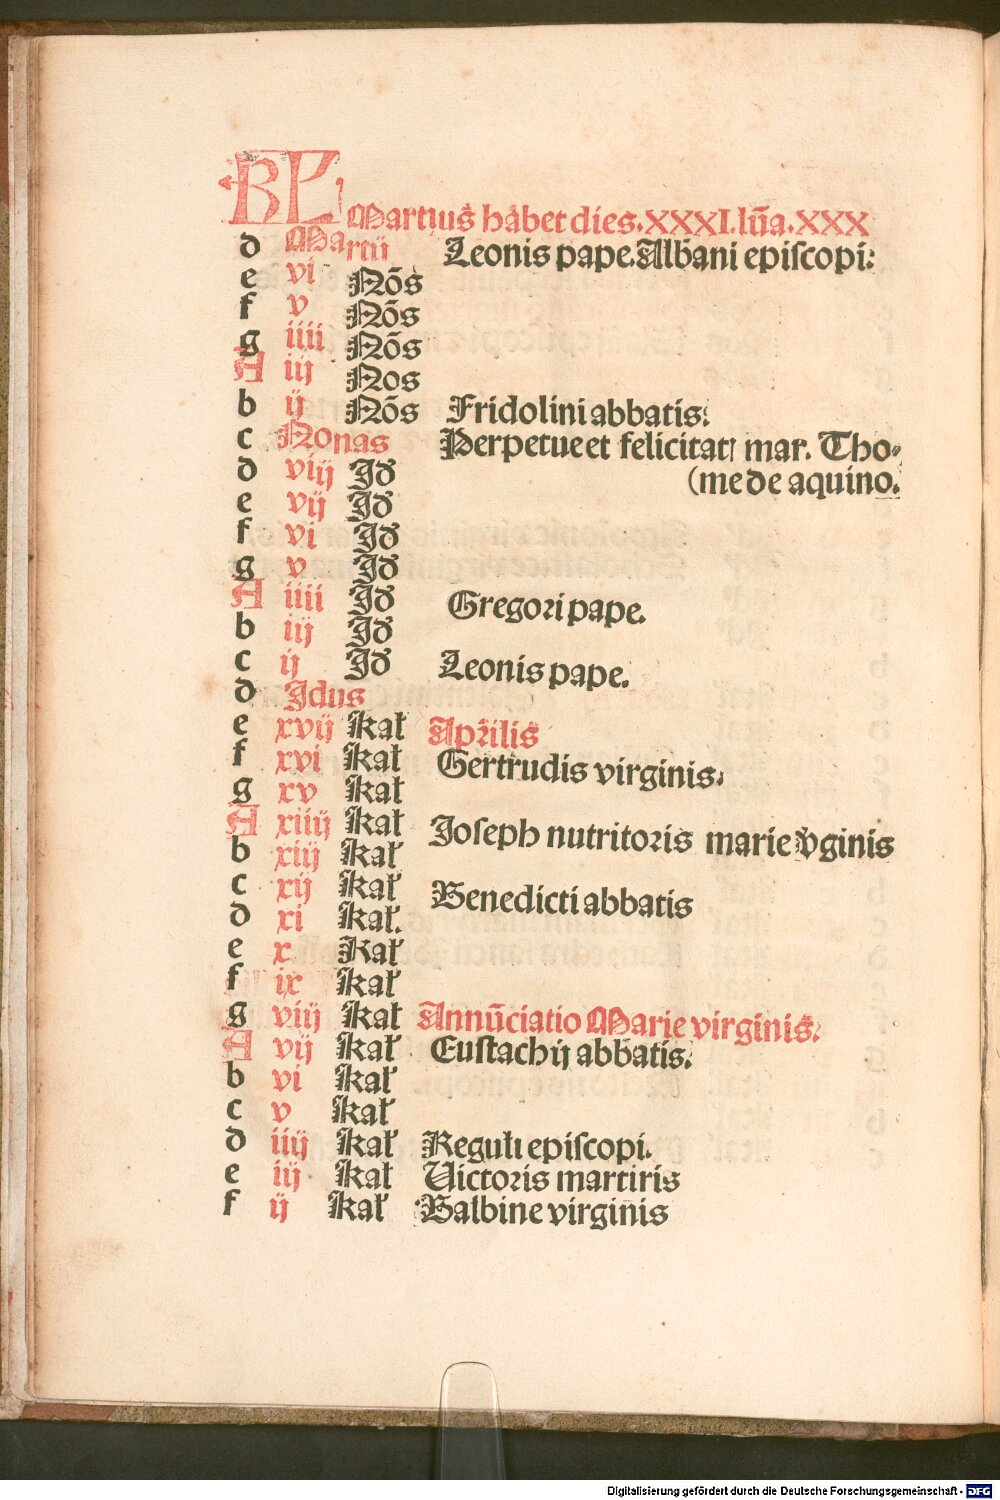 KL Martius habet dies.XXXI.lūa.XXX
d Martii Leonis pape.Albani episcopi:
e vi Nōs
f v Nōs
g iiii Nōs
A iij Nos
b ij Nōs Fridolini abbatis:
c Nonas Perpetue et felicitat mar. Tho-
(me de aquino.
d viij Id
e vij Id
f vi Id
g v Id
A iiii Id Gregori pape.
b iij Id
c ij Id Leonis pape.
d Idus
e xvij kal Aprilis
f xvi kal Gertrudis virginis.
g xv kal
A xiiij kal Joseph nutritoris marie vginis
b xiij kal
c xij kal Benedicti abbatis
d xi kal.
e x Kal
f ix kal
g viij kal Annūciatio Marie virginis.
A vij kal Eustachij abbatis.
b vi kal
c v kal
d iiij kal Reguli episcopi.
e iij kal Victoris martiris
f ij kal Balbine virginis
Digitalisierung gefördert durch die Deutsche Forschungsgemeinschaft - DFG